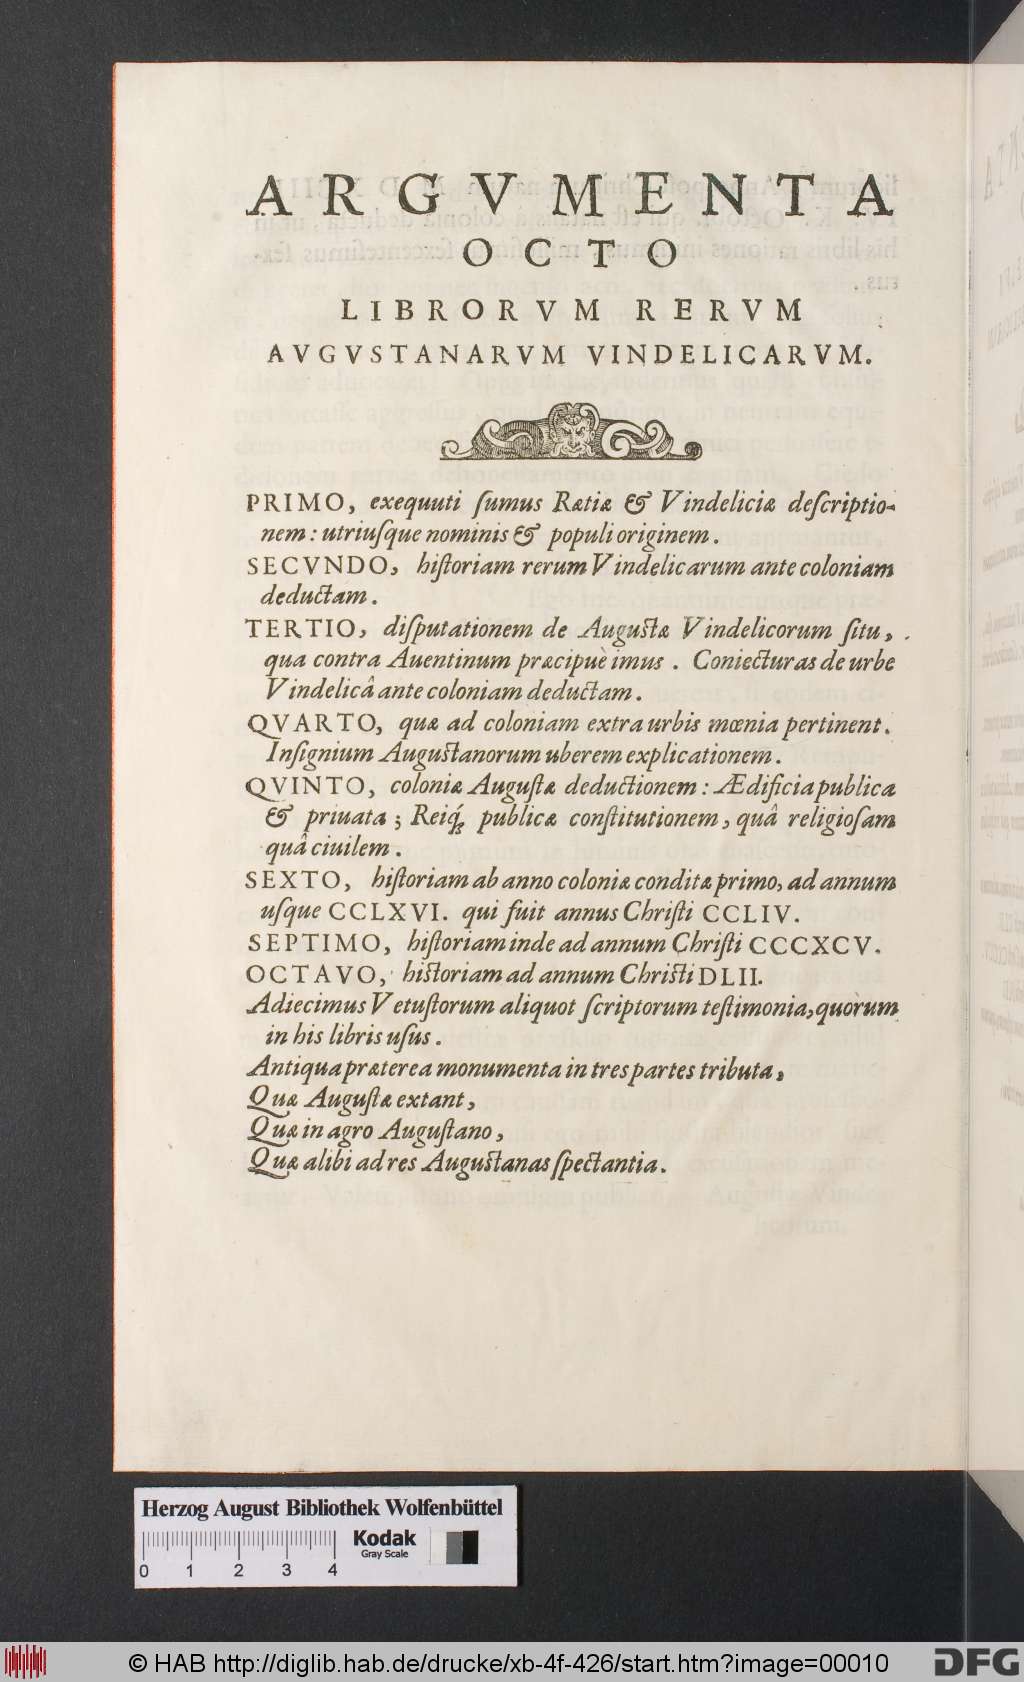 ARGVMENTA
OCTO
LIBRORVM RERVM
AVGVSTANARVM VINDELICARVM.
PRIMO, exequuti ſumus Rætiæ & Vindeliciæ deſcriptio-
nem: utriuſque nominis & populi originem.
SECVNDO, hiſtoriam rerum Vindelicarum ante coloniam
deductam.
TERTIO, diſputationem de Auguſtæ Vindelicorum ſitu,
qua contra Auentinum præcipuè imus. Coniecturas de urbe
Vindelicâ ante coloniam deductam.
QVARTO, quæ ad coloniam extra urbis mœnia pertinent.
Inſignium Auguſtanorum uberem explicationem.
QVINTO, coloniæ Auguſtæ deductionem: Ædificia publica
& priuata; Reiq́; publicæ conſtitutionem, quâ religioſam
quâ ciuilem.
SEXTO, hiſtoriam ab anno coloniæ conditæ primo, ad annum
uſque CCLXVI. qui fuit annus Chriſti CCLIV.
SEPTIMO, hiſtoriam inde ad annum Chriſti CCCXCV.
OCTAVO, hiſtoriam ad annum Chriſti DLII.
Adiecimus Vetuſtorum aliquot ſcriptorum teſtimonia, quorum
in his libris uſus.
Antiqua præterea monumenta in tres partes tributa,
Quæ Auguſtæ extant,
Quæ in agro Auguſtano,
Quæ alibi ad res Auguſtanas ſpectantia.
Herzog August Bibliothek Wolfenbüttel
Kodak
Gray Scale
0 1 2 3 4
© HAB http://diglib.hab.de/drucke/xb-4f-426/start.htm?image=00010
DFG